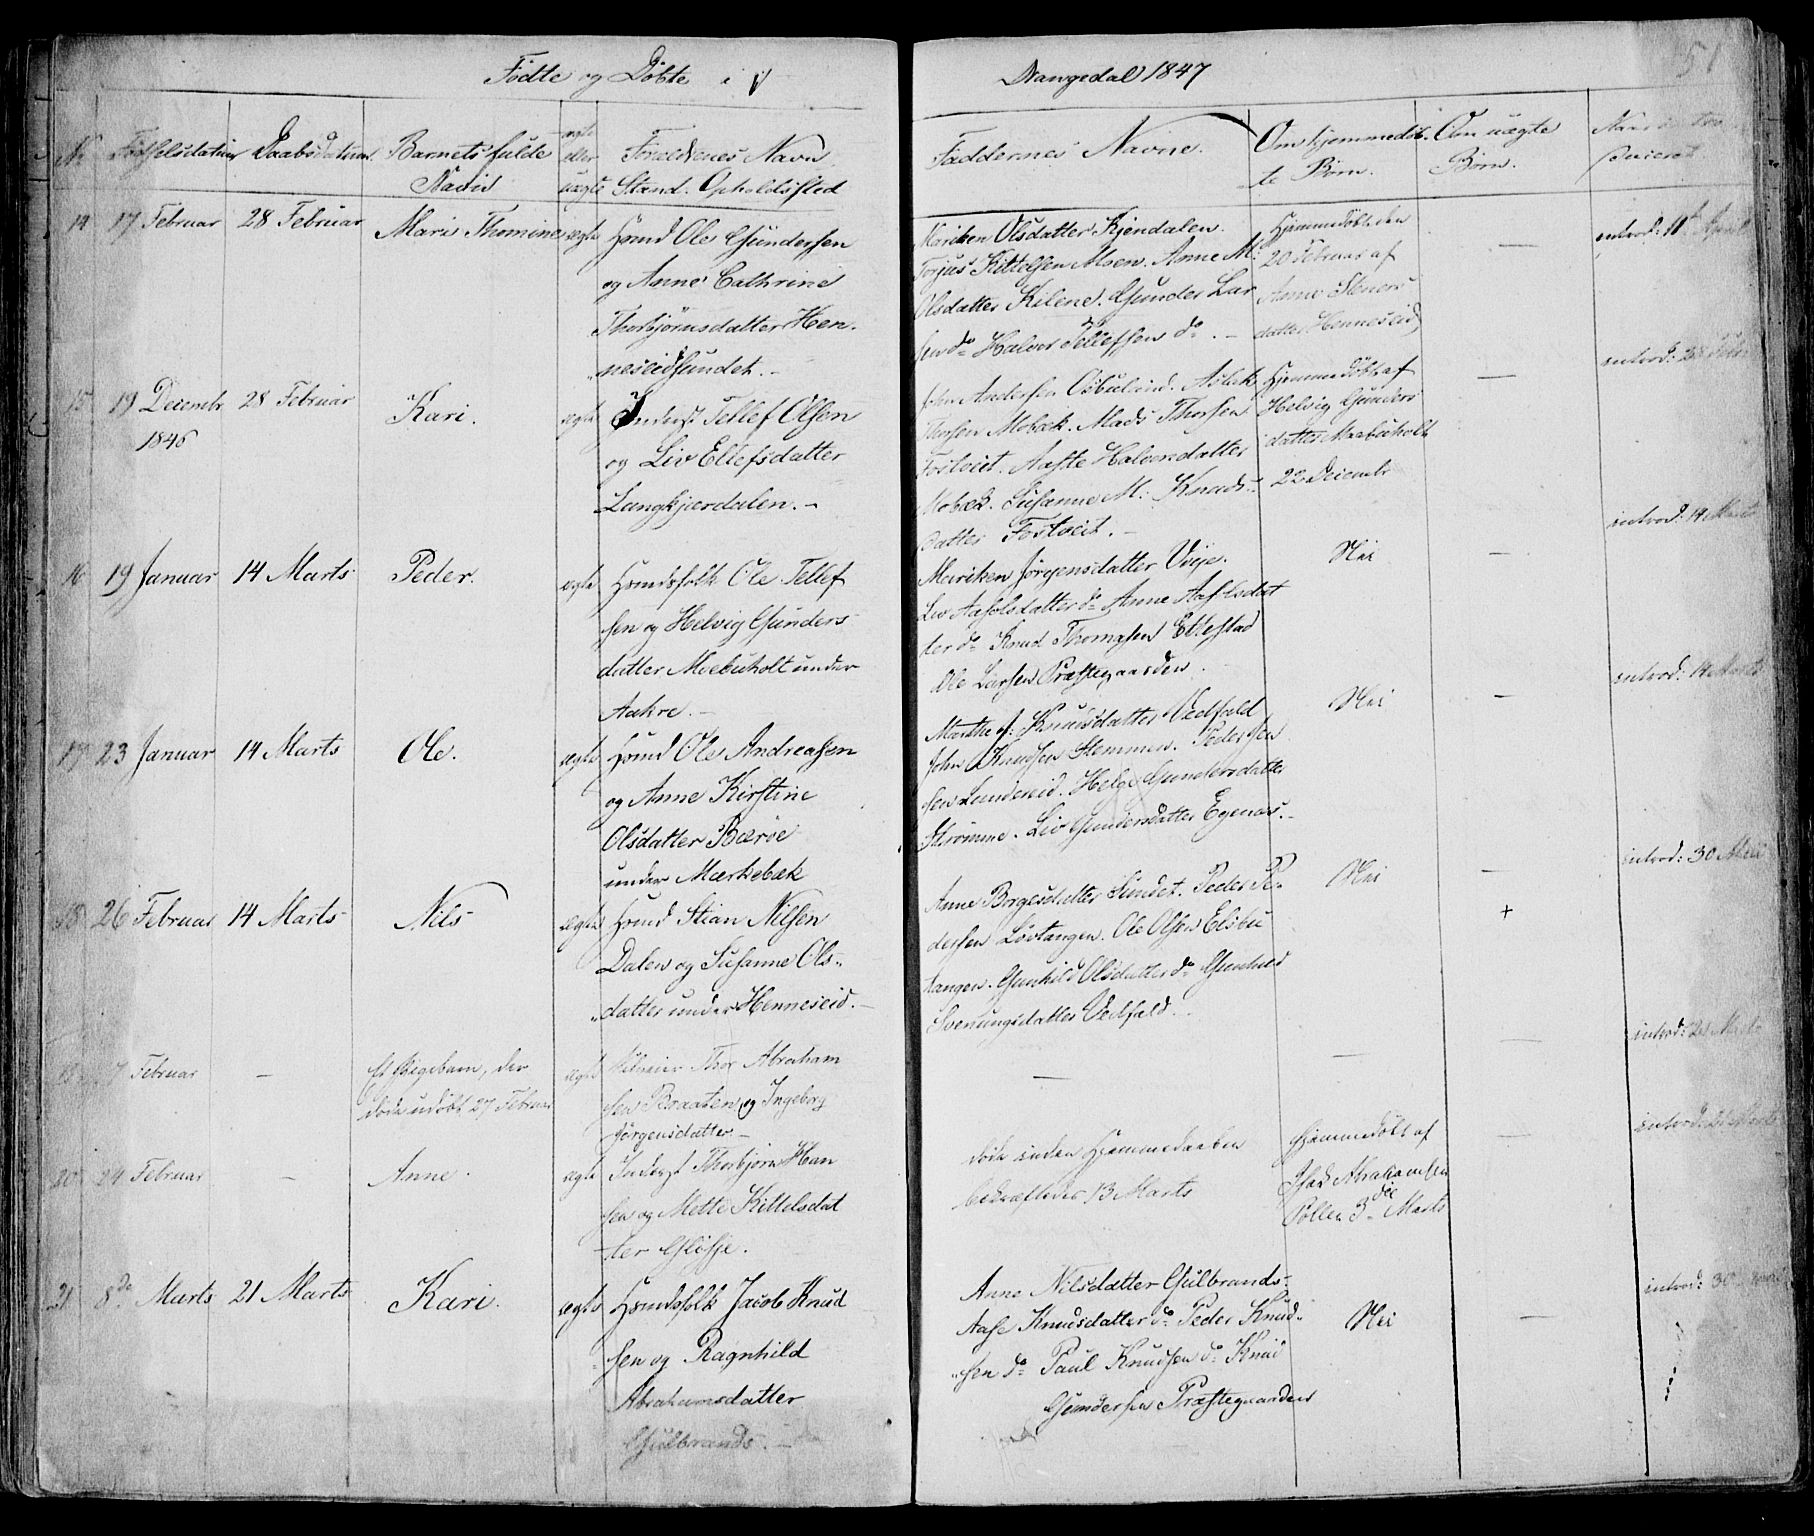 Fødte og Døbte i
Drangedal 1847
51
No Fødselsdatum Daabsdatum Barnets fulde Navn ægte eller uægte Forældrenes Navn Stand. Opholdssted
Faddernes Navne. Om hjemmedøbte Børn. Om uægte Børn.
14 17 Februar 28 Februar Mari Thomine ægte Hsmd Ole Gundersen
og Anne Cathrine
Thorbjørnsdatter Hen-
neseidsundet. -
Mariken Olsdatter Kjendalen.
Torjus Kittelsen Moen. Anne M:
Olsdatter Kilene. Gunder Lar
sen do Halvor Tellefsen do . -
Hjemmedøbt den
20 Februar af
Anne Steners
datter Henneseid
-
introd: 11 April
15 19 Decembr 28 Februar Kari. ægte Inderst Tellef Olsen
1846
og Liv Ellefsdatter
Langkjærdalen. -
John Andersen Osbulind. Aslak
Thorsen Mobæk. Mads Thorsen
Fostveit. Aaste Halvorsdatter
Mobæk. Susanne M: Knuds-
datter Fostveit. -
Hjemmedøbt af
Helvig Gunders
datter Moebuholt
22 Decembr
-
introd: 28 Febr
16 19 Januar 14 Marts Peder. ægte Hsmdsfolk Ole Tellef
sen og Helvig Gunders
datter Moebuholt under
Aakre. -
Mariken Jörgensdatter Voje.
Liv Aasolsdatter do Anne Aasolsdat
ter do Knud Thomasen Ettestad
Ole Larsen Præstegaarden.
Nei
-
introd: 14 Marts
17 23 Januar 14 Marts Ole. ægte Hsmd Ole Andreasen
og Anne Kirstine
Olsdatter Bærøe
under Mærkebæk
Marthe A: Knudsdatter Vedfald
John Knudsen Stemmen. Peder Jen
sen Lundereid. Helge Gundersdatter
Strømme. Liv Gundersdatter Egenæs. -
Nei
-
introd: 14 Marts
18 26 Februar 14 Marts Nils ægte Hsmd Stian Nilsen
Dalen og Susanne Ols-
datter under Henneseid. -
Anne Borgesdatter Sundet. Peder Pe-
dersen Løvtangen. Ole Olsen Elsbu
tangen. Gunhild Olsdatter do Gunhild
Sveinungsdatter Vedfald.
Nei
-
+
introd: 30 Mai
19 27 Februar - Et Pigebarn, der
døde udøbt 27 Februar
ægte Selveier Thor Abraham
sen Braaten og Ingeborg
Jørgensdatter -
- - -
introd: 21 Marts
20 24 Februar - Anne. ægte Inderst Thorbjørn Han
sen og Mette Kittelsdat
ter Gløsje.
døde inden Hjemmedaaben
bekræftedes 13 Marts
Hjemmedøbt af
Isak Abrahamsen
Pollen 3die Marts
-
introd: 21 Marts
21 8de Marts 21 Marts Kari. ægte Hsmdsfolk Jacob Knud
sen og Ragnhild
Abrahamsdatter
Gulbrands. -
Anne Nilsdatter Gulbrands-
Aase Knudsdatter do Peder Knud-
sen do Paul Knudsen do Knud
Gundersen Præstegaarden
Nei
-
introd: 30